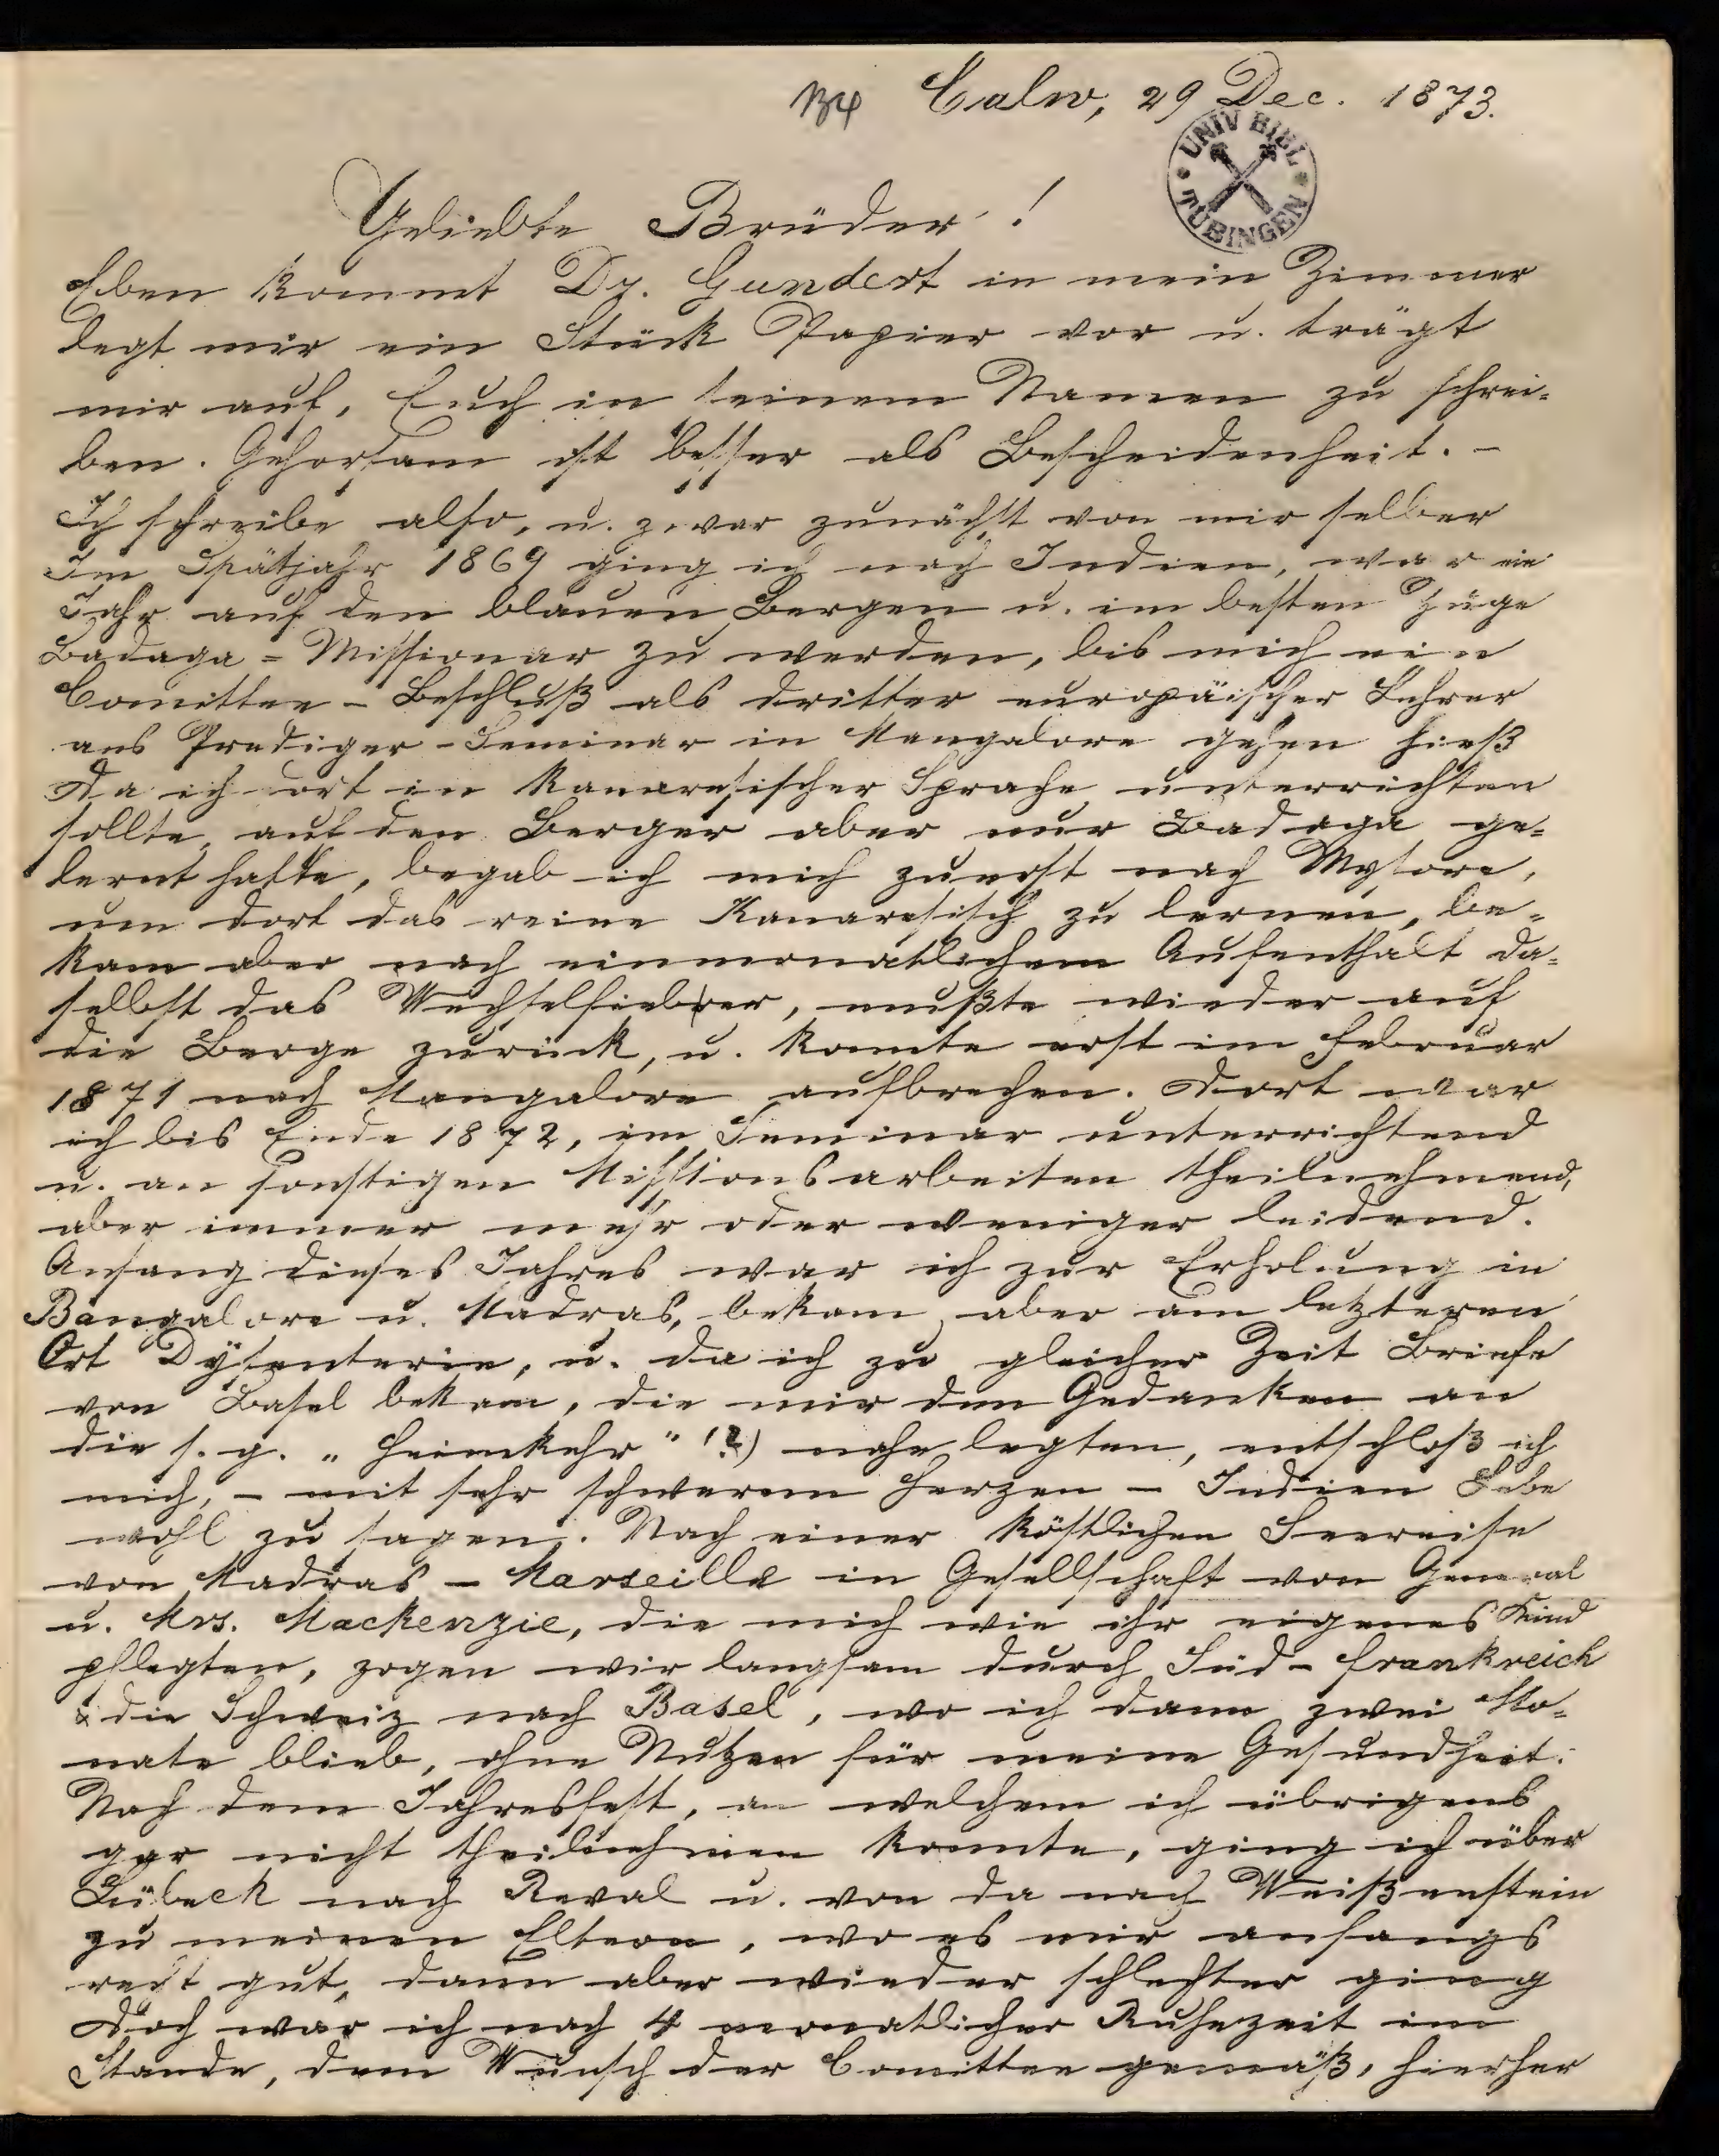 Calw, 29 Dec. 1873.
UNIV BIBL
TÜBINGEN
Geliebte Brüder!
Eben kommt Dr. Gundert in mein Zimmer
legt mir ein Stück Papier vor u. trägt
mir auf, Euch in seinem Namen zu schrei-
ben. Gehorsam ist besser als Bescheidenheit. -
Ich schreibe also, u. zwar zunächst von mir selber
Im Spätjahr 1869 ging ich nach Indien, war ein
Jahr auf den blauen Bergen u. im besten Zuge
Badaga = Missionar zu werden, bis mich ein
Comittee - Beschluß als dritter europäischer Lehrer
ans Prediger - Seminar in Mangalore gehen hieß
Da ich dort in kanaresischer Sprache unterrichten
sollte, auf den Bergen aber nur Badaga ge-
lernt hatte, begab ich mich zuerst nach Mysore,
um dort das reine Kanaresisch zu lernen, be-
kam aber nach einmonatlichem Aufenthalt da-
selbst das Wechselfieber, mußte wieder auf
die Berge zurück, u. konnte erst im Februar
1871 nach Mangalore aufbrechen. Dort war
ich bis Ende 1872, im Seminar unterrichtend
u. an sonstigen Missionsarbeiten theilnehmend,
aber immer mehr oder weniger leidend.
Anfang dieses Jahres war ich zur Erholung in
Bangalore u. Madras, bekam aber am letzteren
Ort Dysenterie, u. da ich zu gleicher Zeit Briefe
von Basel bekam, die mir den Gedanken an
die s. g. „Heimkehr" (?) nahe legten, entschloß ich
mich, - mit sehr schwerem Herzen - Indien Lebe
wohl zu sagen. Nach einer köstlichen Seereise
von Madras - Marseille in Gesellschaft von General
u. Mrs. Mackenzie, die mich wie ihr eigenes Kind
pflegten, zogen wir langsam durch Süd-Frankreich
& die Schweiz nach Basel, wo ich dann zwei Mo-
nate blieb, ohne Nutzen für meine Gesundheit.
Nach dem Jahresfest, an welchem ich übrigens
gar nicht theilnehmen konnte, ging ich über
Lübeck nach Reval u. von da nach Weißenstein
zu meinen Eltern, wo es mir anfangs
recht gut, dann aber wieder schlechter ging
Doch war ich nach 4 monatlicher Ruhezeit im
Stande, dem Wunsch der Comittee gemäß, hierher